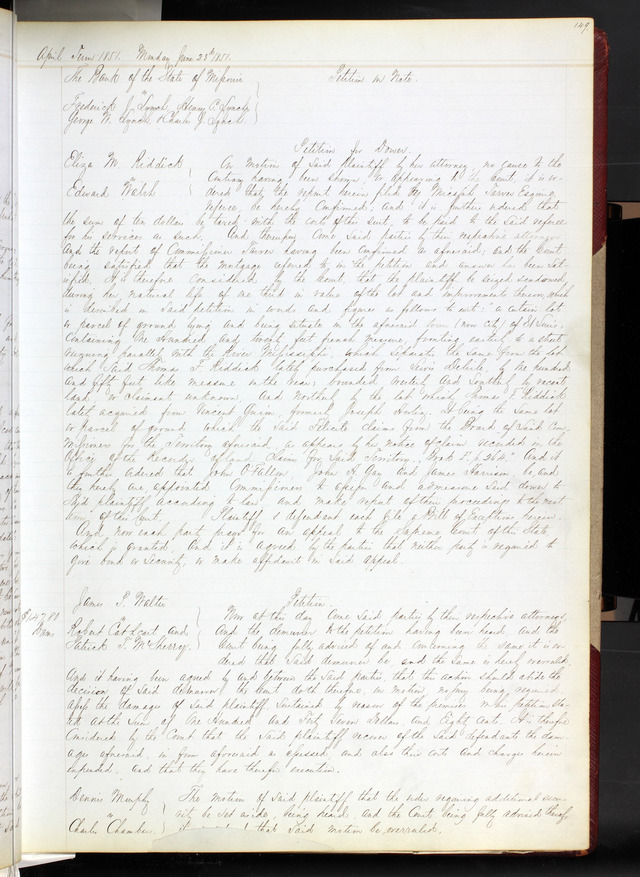 149
April Term 1851. Monday June 23rd 1851.
The Bank of the State of Missouri Petition on Note.
vs
Frederick J. Lynch, Henry C. Lynch
George W. Lynch & Charles J. Lynch
Petition for Dower.
Eliza M. Riddick On motion of said plaintiff by her attorney no cause to the
vs Contrary having been shown or appearing to the Court, it is or-
Edward Walsh dered that the report herein filed by Trusten Esquire
referee be hereby Confirmed, and it is further ordered that
the sum of ten dollars be taxed with the costs of the suit, to be paid to the said referee
for his services as such. And thereupon Come Said parties by their respective attorneys
And the report of Commissioner having been confirmed as aforesaid, and the Court
being satisfied that the mortgage referred to in the petition and answer has been sat-
isfied. It is therefore Considered by the Court, that the plaintiff be seized and endowed,
during her natural life of one third in value of the lot and improvements thereon, which
is described in Said petition in words and figures as follows to wit: "a certain lot
or parcel of ground lying and being situate in the aforesaid town (now City) of St Louis,
Containing One Hundred and twenty feet french measure, fronting easterly to a street
running parallel with the River Mississippi, which separates the same from the lot
which said Thomas F. Riddick lately purchased from by One hundred
and fifty feet like measure in the rear; bounded Westerly and Southerly by vacant
land or claimant unknown. And northerly by the lot which Thomas F. Riddick
lately acquired from Vincent formerly Joseph It being the same lot
or parcel of ground which the said Riddick claims from the Board of said Com-
missioners for the Territory aforesaid, as appears by his notice of claim recorded in the
Office of the Recorder of land Claims for said Territory, Book F. p. 264." And it
is further ordered that John O'Fallon, John H. Gay and James Harrison, be, and
they hereby are appointed Commissioners to assign and admeasure said dower to
said plaintiff according to law and make report of their proceedings to the next
term of this Court. Plaintiff & defendant each file a Bill of Exceptions herein.
And now each party prays for an appeal to the Supreme Court of this State
which is granted. And it is agreed by the parties that neither party is required to
give bond or security, or make affidavit on said appeal.
James T. Walter Petition.
$147.81 vs Now at this day Come Said parties by their respective attorneys,
Dam Robert Cathcart and And the demurrer to the petition having been heard, and the
Patrick T. McSherry Court being fully advised of and Concerning the same it is or-
dered that said demurrer be, and the same is hereby overruled,
And it having been agreed by and between the said parties, that the action should abide the
decision of said demurrer, the Court doth therefore, on motion, no jury being required
assess the damages of said plaintiff Sustained by reason of the premises in his petition sta-
ted at the Sum of One Hundred and Forty Seven Dollars and Eighty Cents. It is therefore
Considered by the Court that the said plaintiff recover of the said defendants the dam-
ages aforesaid, in form aforesaid assessed, and also their costs and charges herein
expended, and that they have therefor execution.
Dennis Murphy The motion of said plaintiff that the order requiring additional secu-
vs rity be set aside, being heard, and the Court being fully advised thereof
Charles Chambers. it that said motion be overruled.